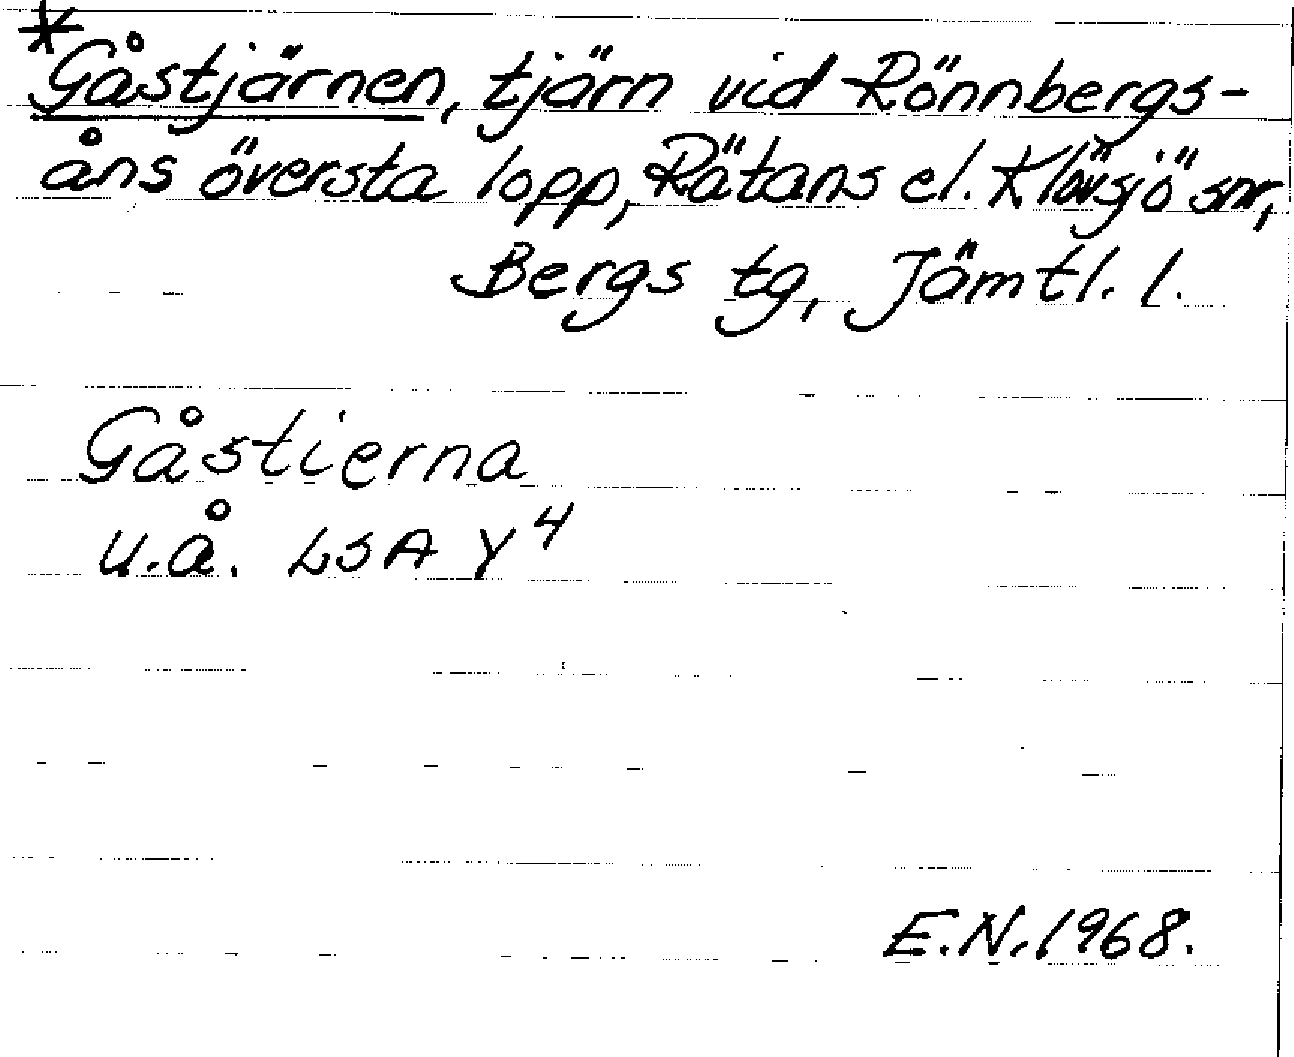 *Gåstjärnen, tjärn vid Rönnbergs-
åns översta lopp, Rätans el. Klövsjö snr,
Bergs tg, Jämtl. l.
Gåstierna
u.å. LSA Y4
E.N. 1968.